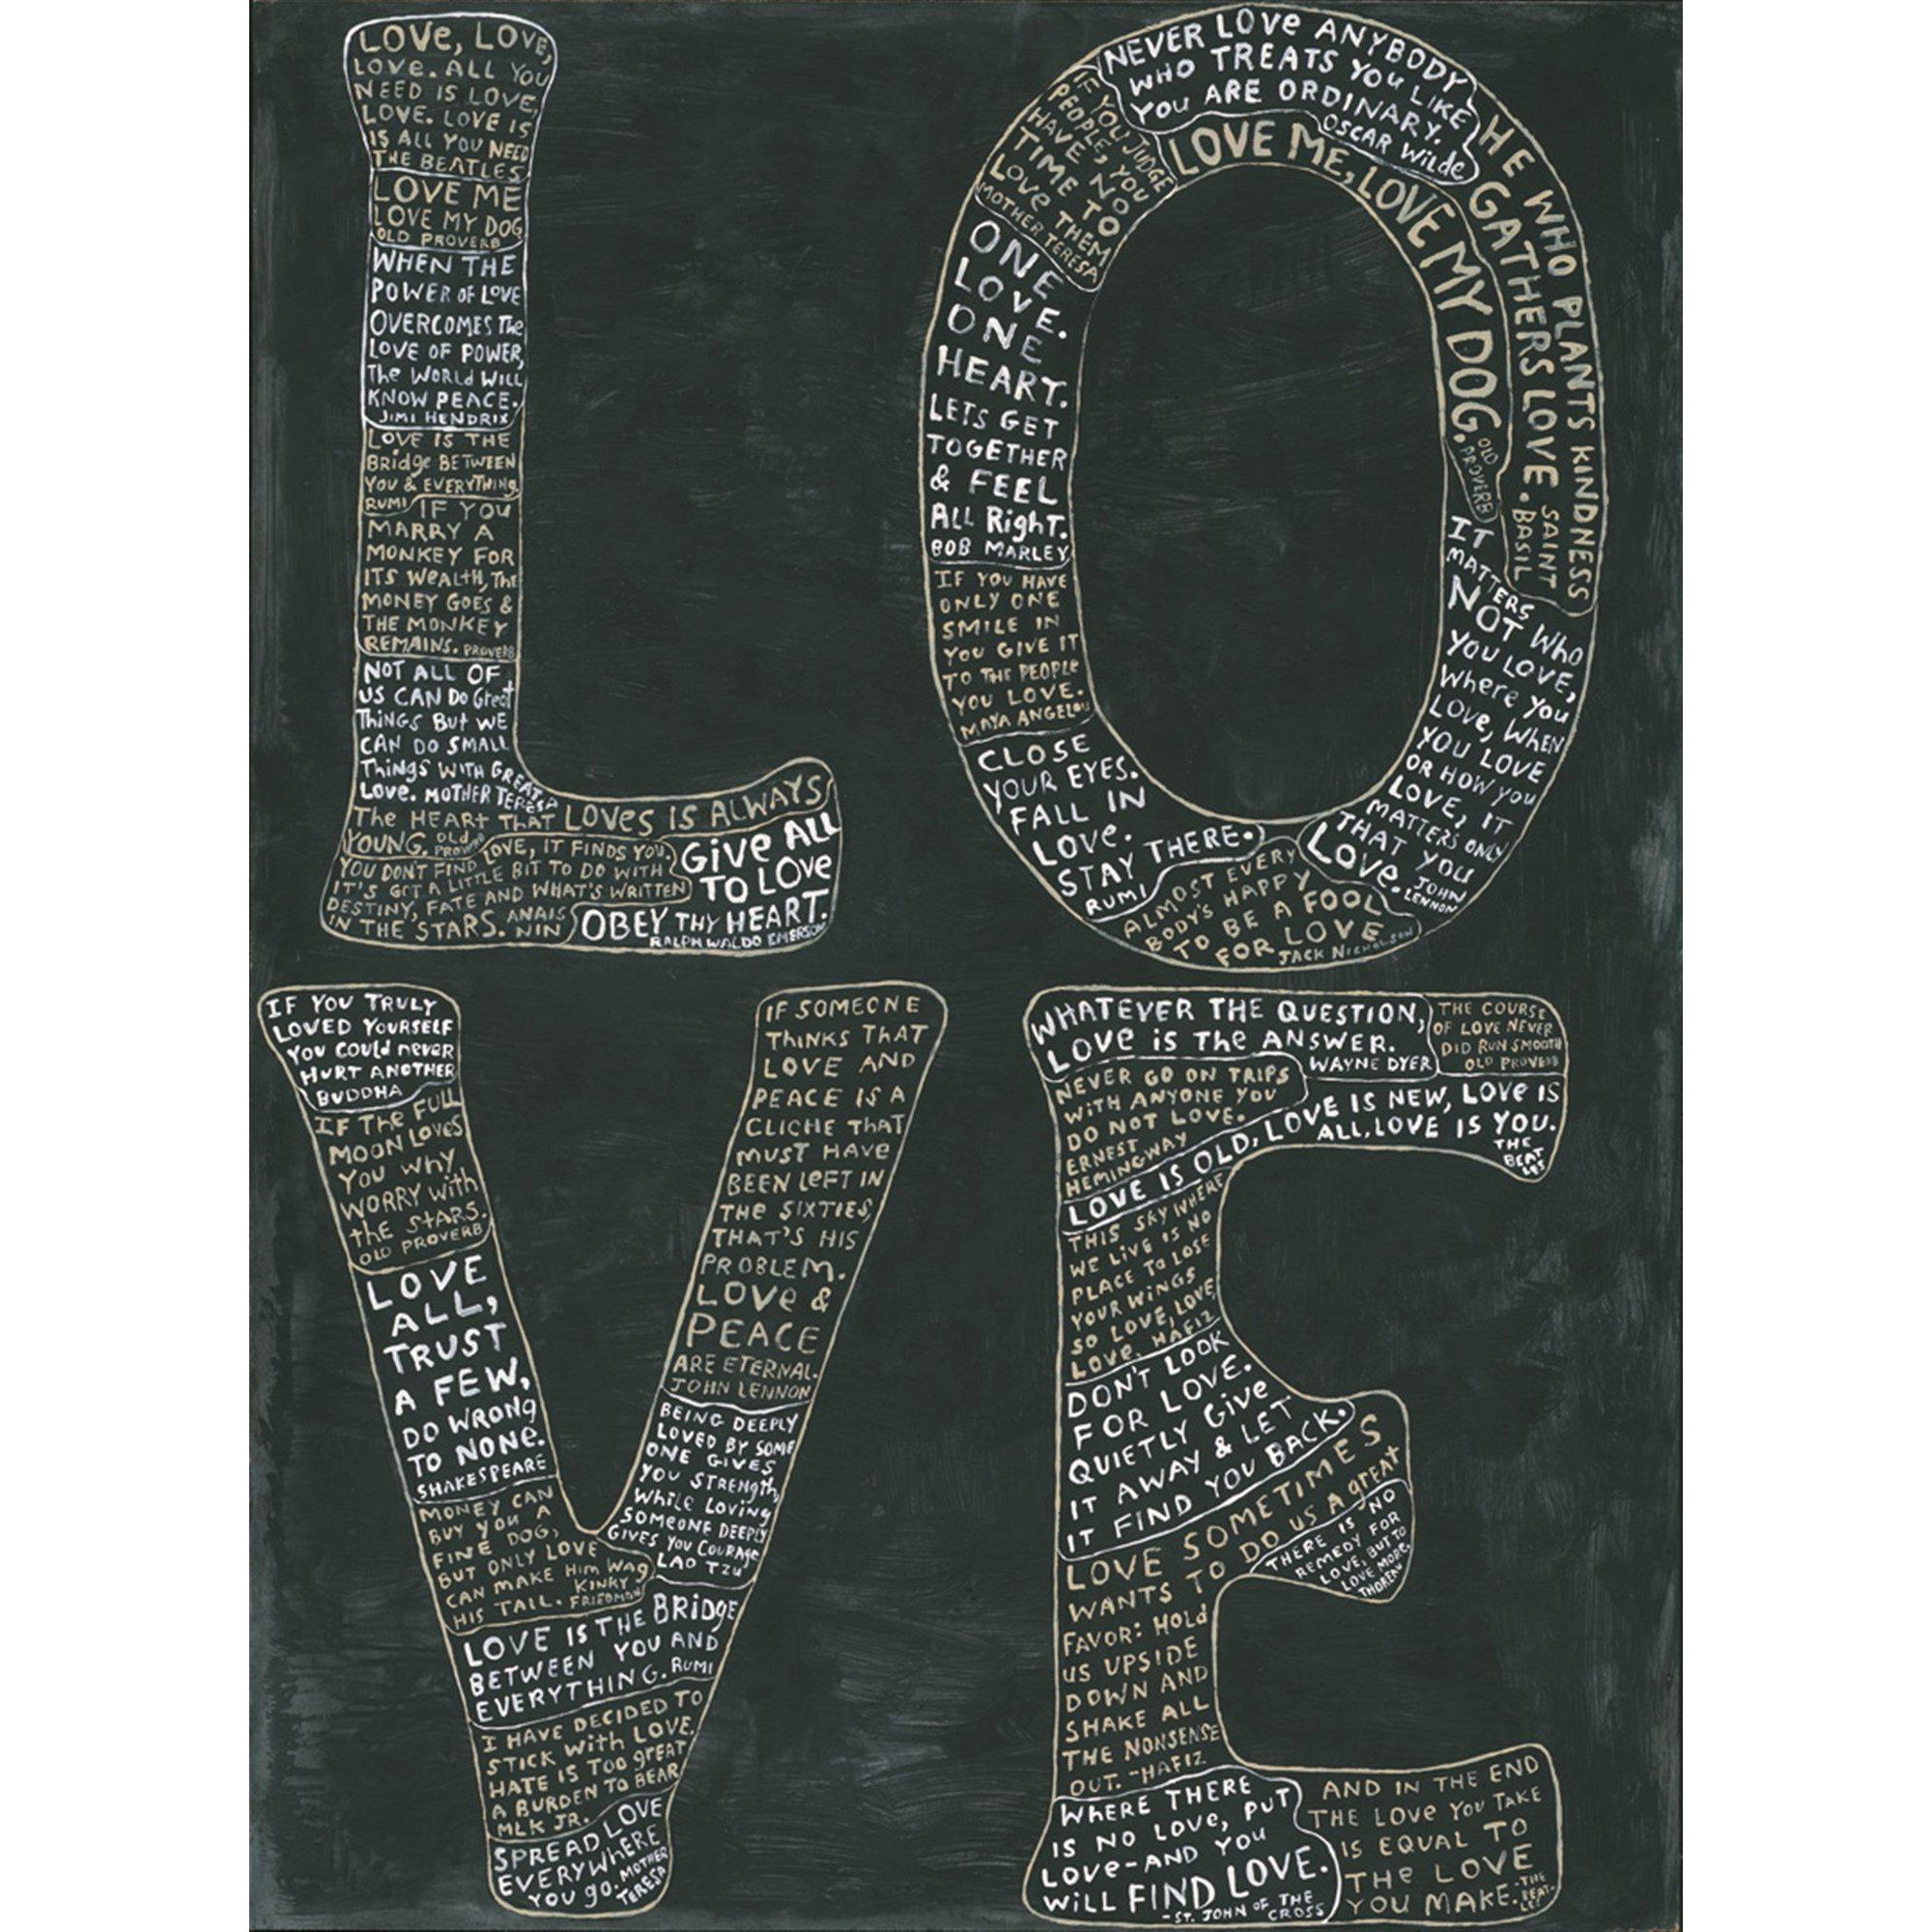 LOVE, LOVE,
LOVE. ALL YOU
NEED IS LOVE,
LOVE. LOVE IS
IS ALL YOU NEED
THE BEATLES
LOVE ME
LOVE MY DOG
OLD PROVERB
WHEN THE
POWER OF LOVE
OVERCOMES The
LOVE OF POWER,
The WORLd WILL
KNOW PEACE.
JIMI HENDRIX
LOVE IS THE
BRidge BETWEEN
YOU & EVERYTHING.
RUMI
IF YOU
MARRY A
MONKEY FOR
ITS WeALTH, The
MONEY GOES &
THE MONKEY
REMAINS. PROVERB
NOT ALL OF
US CAN Do Great
Things But WE
CAN DO SMALL
Things WITH GREAT
Love. MOTHER TERESA
The HEART THAT LOVES IS ALWAYS
YOUNG. OLd PROVERB
LOVE, IT FINDS YOU.
YOU DON'T FIND
IT'S GOT A LITTLE BIT TO DO WITH
DESTINY, FATE AND WHAT'S WRITTEN
IN THE STARS. ANAIS
NIN
GIVE ALL
TO LOVE
OBEY THY HEART.
RALPH WALDO EMERSON
NEVER LOVE ANYBODY
WHO TREATS YOU LIKE
YOU ARE ORDINARY.
OSCAR WILde
IF YOU JUDGE
PEOPLE, YOU
HAVE NO
TIME TO
LOVE THEM
MOTHER TERESA
LOVE ME, LOVE MY DOG.
OLD
PROVERB
HE WHO PLANTS KINDNESS
GATHERS LOVE. SAINT
BASIL
ONE
LOVE.
ONE
HEART.
LETS GET
TOGETHER
& FEEL
ALL RighT.
BOB MARLEY
IF YOU HAVE
ONLY ONE
SMILE IN
YOU GIVE IT
TO THE PEOPLE
YOU LOVE.
MAYA ANGELOU
CLOSE
YOUR EYES.
FALL IN
LOVE.
STAY THERE.
RUMI
IT
MATTERS
NOT Who
YOU LOVE,
Where You
LOVE, WHEN
YOU LOVE
OR HOW YOU
LOVE, IT
MATTERS ONLY
THAT YOU
LOVE. JOHN
LENNON
ALMOST EVERY
BODY'S HAPPY
TO BE A FOOL
FOR LOVE
JACK NICHOLSON
IF YOU TRULY
LOVED YOURSELF
YOU COULd never
HURT ANOTHER
BUDDHA
IF THe FULL
MOON LOVES
YOU Why
WORRY with
the STARS.
OLD PROVERB
LOVE
ALL,
TRUST
A FEW,
DO WRONG
TO NONE.
SHAKESPEARE
MONEY CAN
BUY YOU A
FINE DOG,
BUT ONLY LOVE
CAN MAKE Him WAg
HIS TAIL. KINKY
FRIEDMAN
IF SOMEONE
THINKS THAT
LOVE AND
PEACE IS A
CLICHE THAT
MUST HAVE
BEEN LEFT IN
THE SIXTIES,
THAT'S HIS
PROBLEM.
LOVE &
PEACE
ARE ETERNAL.
JOHN LENNON
BEING DEEPLY
LOVED BY SOME
ONE GIVES
YOU STRENGTH,
WHILE LOVING
SOMEONE DEEPLY
GIVES YOU COURAGE
LAO TZU
LOVE IS THE BRIDGE
BETWEEN YOU AND
EVERYTHING. RUMI
I HAVE DECIDED TO
STICK WITH LOVE.
HATE IS TOO GREAT
A BURDEN TO BEAR
MLK JR.
SPREAD LOVE
EVERYWHERE
YOU go. MOTHER
TERESA
WHATEVER THE QUESTION,
LOVE is THe ANSWER.
WAYNE DYER
THE COURSE
OF LOVE NEVER
DID RUN SMOOTH
OLD PROVERB
NEVER GO ON TRIPS
WITH ANYONE YOU
DO NOT LOVE.
ERNEST
HEMINGWAY
LOVE IS OLD, LOVE IS NEW, LOVE IS
ALL, LOVE IS YOU.
THE
BEAT
LES
THIS SKY WHERE
WE LIVE IS NO
PLACE TO LOSE
YOUR WINGS
SO LOVE, LOVE,
LOVE. HAFIZ
DON'T LOOK
FOR LOVE.
QUIETLY GIVE
IT AWAY & LET
IT FIND YOU BACK.
LOVE SOMETIMES
WANTS TO DO US A gREAT
FAVOR: HOLd
US UPSIDE
DOWN AND
SHAKE ALL
THE NONSENSE
OUT. -HAFIZ
THERE IS NO
REMEDY FOR
LOVE, BUT TO
LOVE MORE.
THOREAU
WHERE THERE
IS NO LOVE, PUT
LOVE-AND YOU
WILL FIND LOVE.
-ST. JOHN OF THE
CROSS
AND IN THE END
THE LOVE YOU TAKE
IS EQUAL TO
THE LOVE
YOU MAKE. -THE
BEAT-
LES